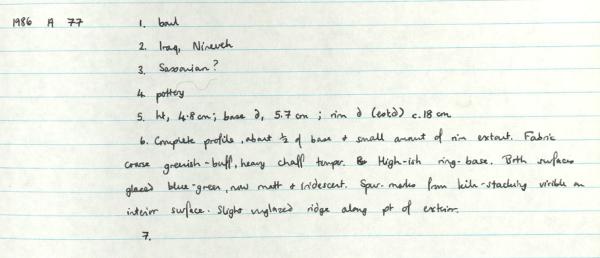 1986 A 77 1. bowl
2. Iraq, Nineveh
3. Sassanian?
4. pottery
5. ht, 4.8 cm; base d, 5.7 cm; rim d (estd) c. 18 cm
6. Complete profile, about ½ of base + small amount of rim extant. Fabric
coarse greenish-buff, heavy chaff temper. High-ish ring-base. Both surfaces
glazed blue-green, now matt + iridescent. Spur-marks from kiln-stacking visible on
interior surface. Slight unglazed ridge along pt of exterior.
7.